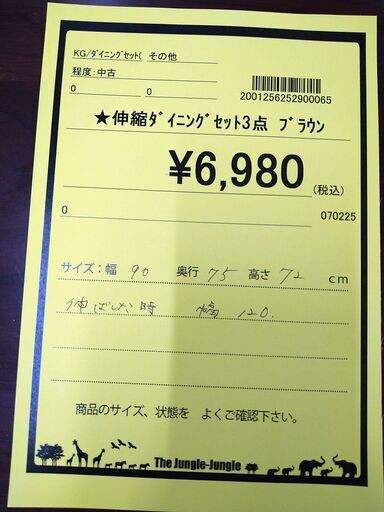 KG/ﾀﾞｲﾆﾝｸﾞｾｯﾄ( その他
程度:中古
0 0
2001256252900065
★伸縮ﾀﾞｲﾆﾝｸﾞｾｯﾄ3点 ﾌﾞﾗｳﾝ
¥6,980
(税込)
0 070225
サイズ:幅 90 奥行 75 高さ 72 cm
伸ばした時 幅 120.
商品のサイズ、状態を よくご確認下さい。
The Jungle-Jungle